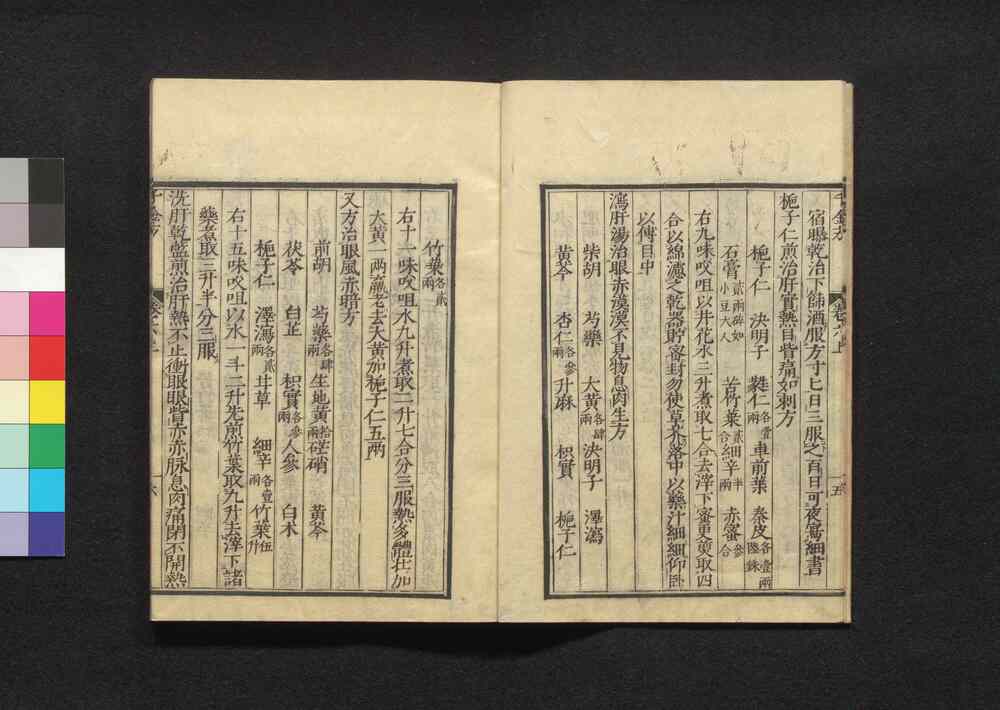 宿曝乾治下篩酒服方寸匕日三服之百日可夜寫細書
梔子仁煎治肝實熱目眥痛如刺方
梔子仁 決明子 蕤仁各壹兩 車前葉 秦皮各壹兩陸銖
石膏貳兩碎如小豆大 苦竹葉貳合 細辛半兩 赤蜜參合
右九味㕮咀以井花水三升煮取七合去滓下蜜更煎取四
合以綿濾之乾器貯密封勿使草芥落中以藥汁細細仰臥
以傅目中
瀉肝湯治眼赤漠漠不見物息肉生方
柴胡 芍藥 大黃各肆兩 決明子 澤瀉
黃芩 杏仁各參兩 升麻 枳實 梔子仁
竹葉各貳兩
右十一味㕮咀水九升煮取二升七合分三服熱多體壯加
大黃一兩羸老去大黃加梔子仁五兩
又方治眼風赤暗方
前胡 芍藥各肆兩 生地黃拾兩 芒硝 黃芩
茯苓 白芷 枳實各參兩 人參 白朮
梔子仁 澤瀉各貳兩 甘草 細辛各壹兩 竹葉伍升
右十五味㕮咀以水一斗二升先煎竹葉取九升去滓下諸
藥煮取三升半分三服
洗肝乾藍煎治肝熱不止衝眼眼眥赤赤脉息肉痛閉不開熱